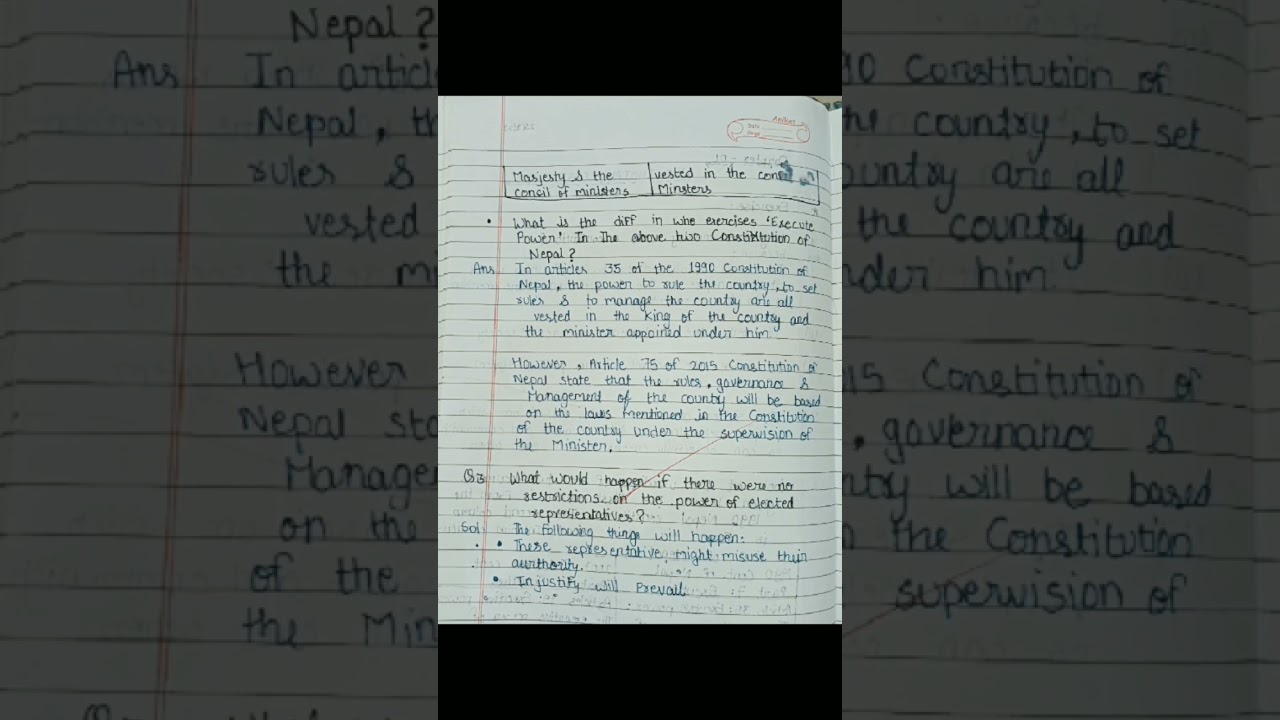 Masjesty & the
concil if ministers
vested in the
Minsters
• What is the diff in whe exercises 'Execute
Power' In The above two Constitution of
Nepal?
Ans In articles 35 of the 1990 Constitution of
Nepal, the power to rule the country, to set
rules & to manage the country are all
vested in the king of the country and
the minister appoined under him
However, Article 75 of 2015 Constitution of
Nepal state that the rules, governance &
Management of the country will be based
on the laws mentioned in the Constitution
of the country under the supervision of
the Ministen.
Q3 What would happen if there were no
restrictions on the power of elected
representatives?
Sol The following things will happen:
• These representative might misuse their
aurthority.
• Injustify will Prevail.